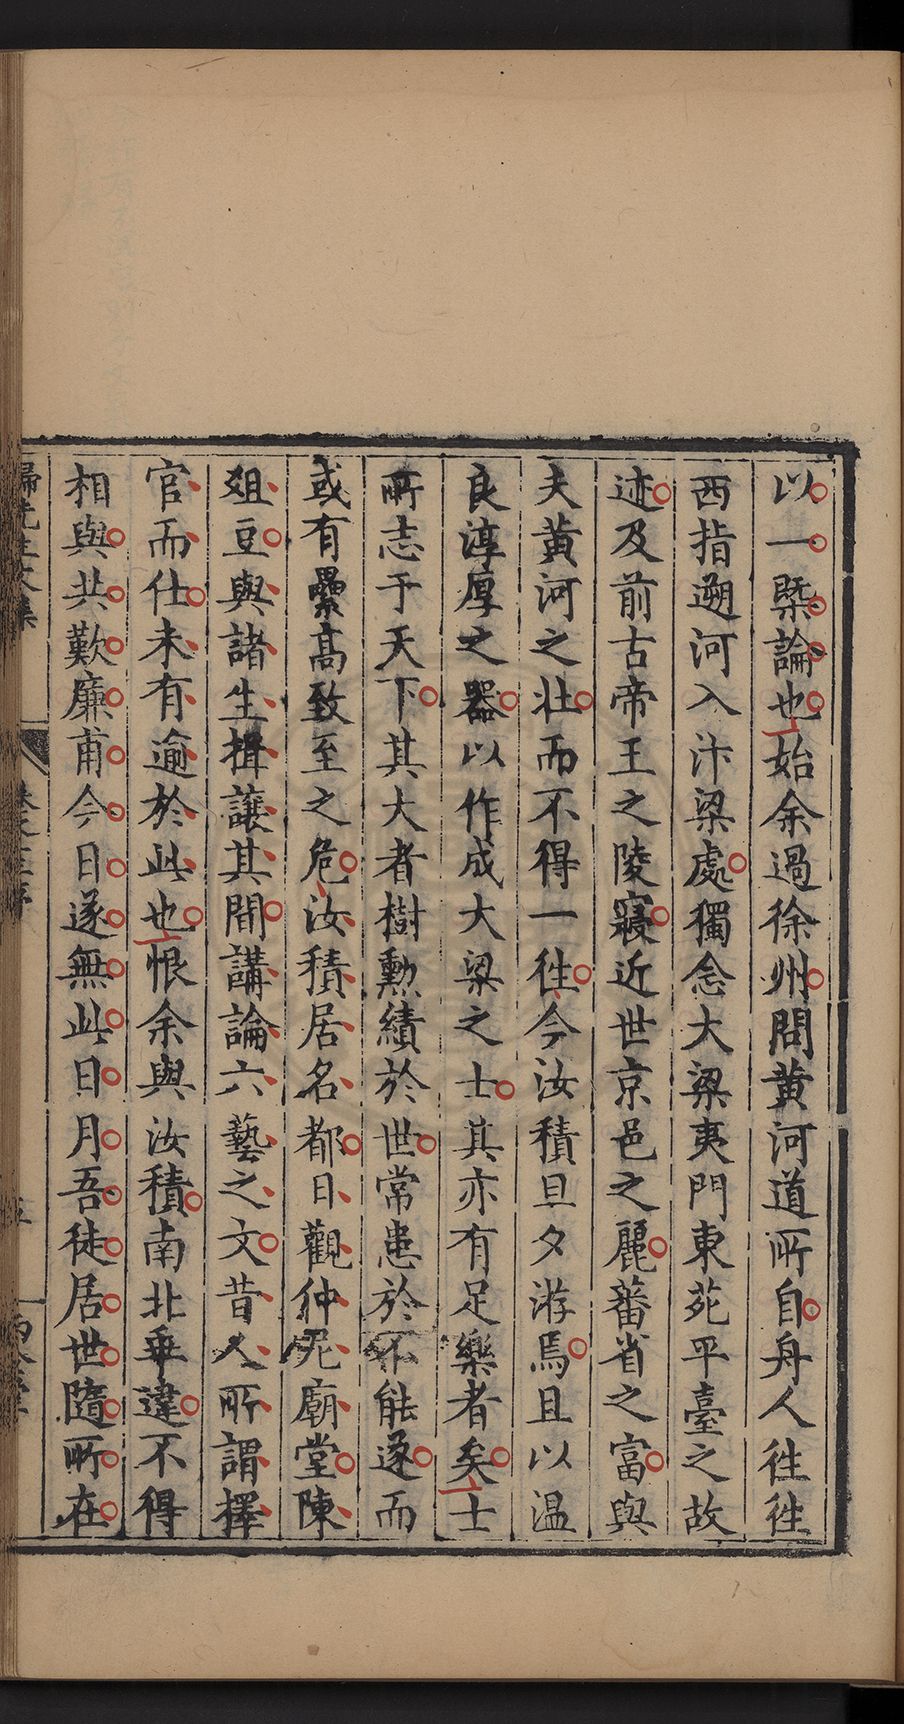 以一槩論也始余過徐州問黃河道所自舟人徃徃
西指遡河入汴梁處獨念大梁夷門東苑平臺之故
迹及前古帝王之陵寢近世京邑之麗蕃省之富與
夫黃河之壯而不得一徃今汝積旦夕游焉且以温
良淳厚之器以作成大梁之士其亦有足樂者矣士
所志于天下其大者樹勳績於世常患於不能遂而
或有纍高致至之危汝積居名都日觀仲尼廟堂陳
俎豆與諸生揖讓其間講論六藝之文昔人所謂擇
官而仕未有逾於此也恨余與汝積南北乖違不得
相與共歎廉甫今日遂無此日月吾徒居世隨所在